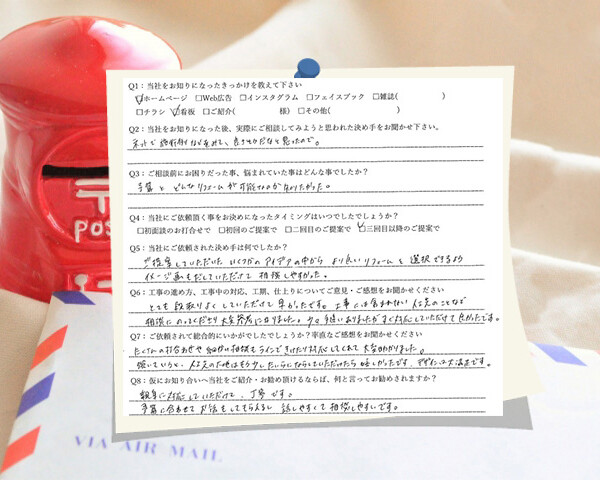 〒
POS
Q1：当社をお知りになったきっかけを教えて下さい
☑ホームページ □Web広告 □インスタグラム □フェイスブック □雑誌( )
□チラシ ☑看板 □ご紹介( 様) □その他( )
Q2：当社をお知りになった後、実際にご相談してみようと思われた決め手をお聞かせ下さい。
ネットで施工例などをみて、良さそうだなと思ったので。
Q3：ご相談前にお困りだった事、悩まれていた事はどんな事でしたか？
予算と どんなリフォームが可能なのか知りたかった。
Q4：当社にご依頼頂く事をお決めになったタイミングはいつでしたでしょうか？
□初面談のお打合せで □初回のご提案で □二回目のご提案で ☑三回目以降のご提案で
Q5：当社に依頼された決め手は何でしたか？
ご提案していただいた いくつかのアイデアの中から より良いリフォームを選択できるよう
イメージ画もだしていただけて相談しやすかった。
Q6：工事の進め方、工事中の対応、工期、仕上りについてご意見・ご感想をお聞かせください
とても段取りよくしていただけて早かったです。工事には含まれない
相談にのってくださり大変参考になりました。多々 ありましたがすぐ対応していただけて良かったです。
Q7：ご依頼されて総合的にいかがでしたでしょうか？率直なご感想をお聞かせください
打合わせや細かな相談もラインでさせたり対応してくれて大変助かりました。
強いていうと、 していただけたら嬉しかったです。デザインは大満足です。
Q8：仮にお知り合いへ当社をご紹介・お勧め頂けるならば、何と言ってお勧めされますか？
親身に対応していただけて、丁寧です。
予算に合わせてお話をしてもらえるし 話しやすくて相談しやすいです。
VIA AIR MAIL